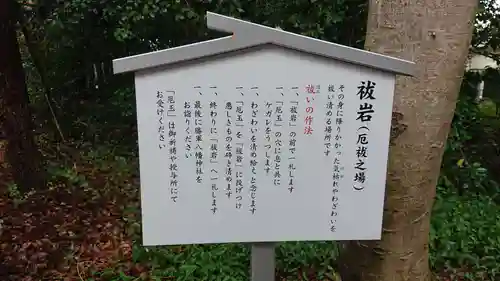 祓岩（厄祓之場）
その身に降りかかった気枯れやわざわいを
祓い清める場所です
祓いの作法
一、「祓岩」の前で一礼します
一、「厄玉」の穴に息と共に
ケガレをうつします
一、わざわいを清め給えと念じます
一、「厄玉」を「祓岩」に投げつけ
悪しきものを砕き清めます
一、終わりに「祓岩」へ一礼します
一、最後に勝軍八幡神社を
お詣りください
「厄玉」は御祈祷や授与所にて
お受けください